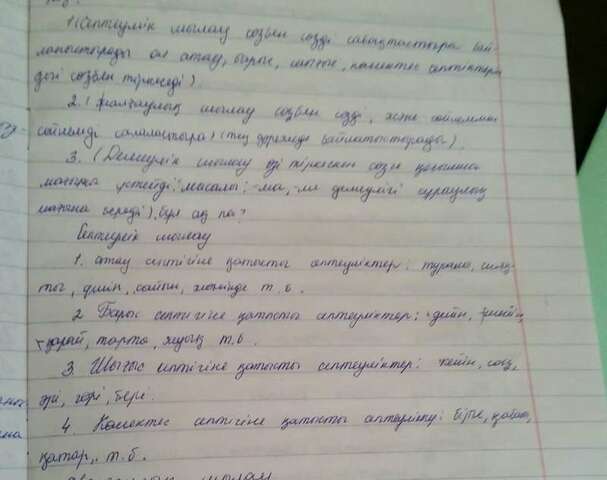 1. (Септеулік шылау сөзбен сөзді сабақтастыра бай-
ланыстырады ол атау, барыс, шығыс, көмектес септіктері
дегі сөзбен тіркеседі).
2. (Жалғаулық шылау сөзбен сөзді, және сөйлеммен
сөйлемді салаластыра) (тең дәрежеде байланыстырады).
3. (Демеулік шылау өзі тіркескен сөзге қосымша
мағына үстейді: масалы: -ма, -ме демеулігі сұраулық
мағына береді), бұл ақ па?
Септеулік шылау
1. атау септігіне қатысты септеуліктер: туралы, сияқ-
ты, үшін, сайын, жөнінде т. б.
2. Барыс септігіне қатысты септеуліктер: -дейін, -шейін,
-қарай, тарта, жуық т.б.
3. Шығыс септігіне қатысты септеуліктер: кейін, соң,
гөрі, бері.
4. Көмектес септігіне қатысты септеулік: бірге, қабат,
қатар, т. б.
шылау